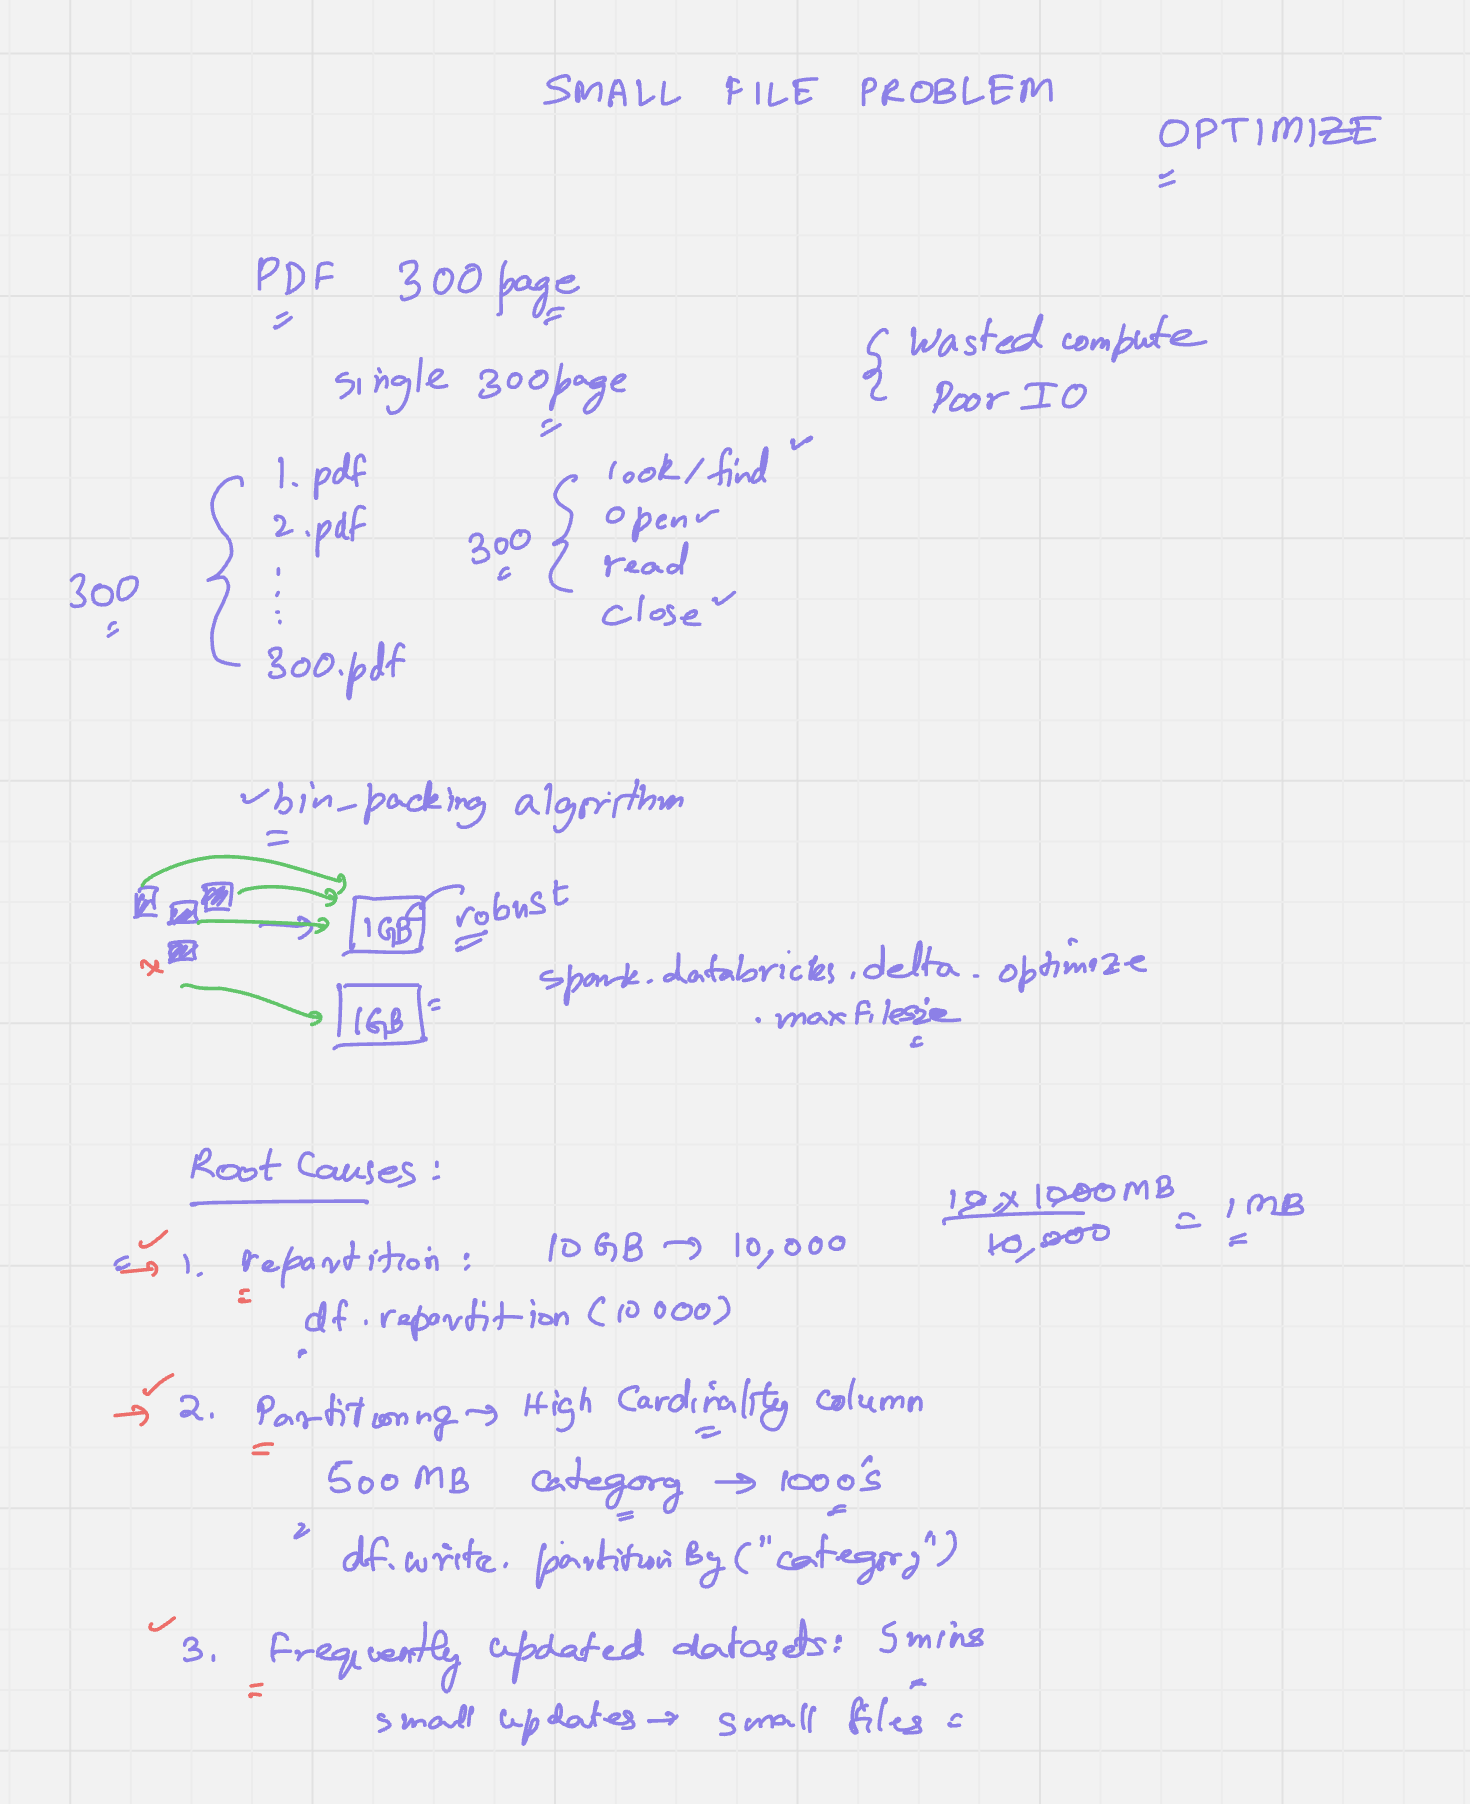 SMALL FILE PROBLEM
OPTIMIZE
PDF 300 page
single 300 page
{ Wasted compute
Poor IO
300 { 1. pdf
2. pdf
300.pdf
300 { look/find ✓
open ✓
read
close ✓
✓ bin-packing algorithm
1GB robust
1GB =
spark.databricks.delta.optimize
.maxfilesize
Root Causes:
1. repartition: 10 GB → 10,000
10 x 1000 MB / 10,000 = 1 MB
df.repartition (10 000)
2. Partitionng → High Cardinality column
500 MB category → 1000's
df.write.partitionBy("category")
3. Frequently updated datasets: 5 mins
small updates → small files